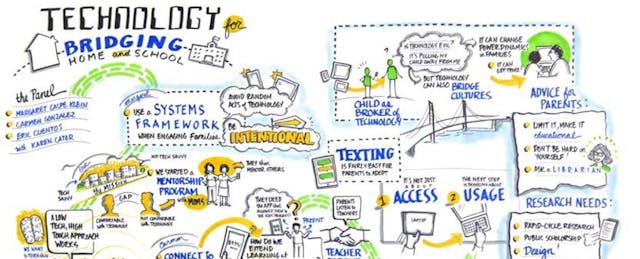 TECHNOLOGY for
BRIDGING
HOME and SCHOOL
the Panel
MARGARET CASPE KLEIN
CARMEN GONZALEZ
ERIC CUENTOS
with KAREN CATER
USE a SYSTEMS
FRAMEWORK
WHEN ENGAGING Families
AVOID RANDOM
ACTS of TECHNOLOGY
Be
INTENTIONAL
TECH
SAVVY
NOT TECH SAVVY
the MISSION
GAP
WE STARTED a
MENTORSHIP
PROGRAM
with MOMS
they then
MENTOR OTHERS
A LOW
TECH, HIGH
TOUCH APPROACH
WORKS
CONNECT to
HOW DO WE
EXTEND
LEARNING at
PARENT
PARENTS
LISTEN to
TEACHERS
TEACHER
IS TECHNOLOGY EVIL?
IT'S PULLING MY
CHILD AWAY FROM ME
BUT TECHNOLOGY
CAN ALSO
BRIDGE
CULTURES
CHILD as
BROKER of
TECHNOLOGY
IT CAN CHANGE
POWER DYNAMICS
in FAMILIES
TEXTING
IS FAIRLY EASY FOR
PARENTS to ADOPT
1 IT'S NOT JUST
ABOUT
ACCESS
LAPTOP
2 THE NEXT STEP
IS THINKING ABOUT
USAGE
ADVICE for
PARENTS:
LIMIT IT, MAKE IT
educational
DON'T BE HARD on
YOURSELF
ASK a LIBRARIAN
RESEARCH NEEDS:
RAPID-CYCLE RESEARCH
PUBLIC SCHOLARSHIP
Design